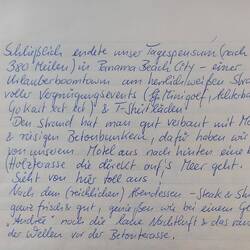 Schließlich endete unser Tagespensum (nach
380 Meilen) in Panama Beach City - einer
Urlauberboomtown am herrlich weißen Stra
voller Vergnügungsevents (zB Minigolf,
Gokart ect ect) & T-Shirtläden!
Den Strand hat man gut verbaut mit Mo
& riesigen Betonbunkern, dafür haben wir
von unserem Motel aus nach hinten eine
(Holz)terrasse die direkt auf's Meer geht.
Sieht von hier toll aus
Nach dem (reichlichen) Abendessen - Steak & Shr
ganz frisch & gut, genießen wir bei einem Gl
"Andre" nur die laue Nachtluft & das
der Wellen vor der Betonterasse.